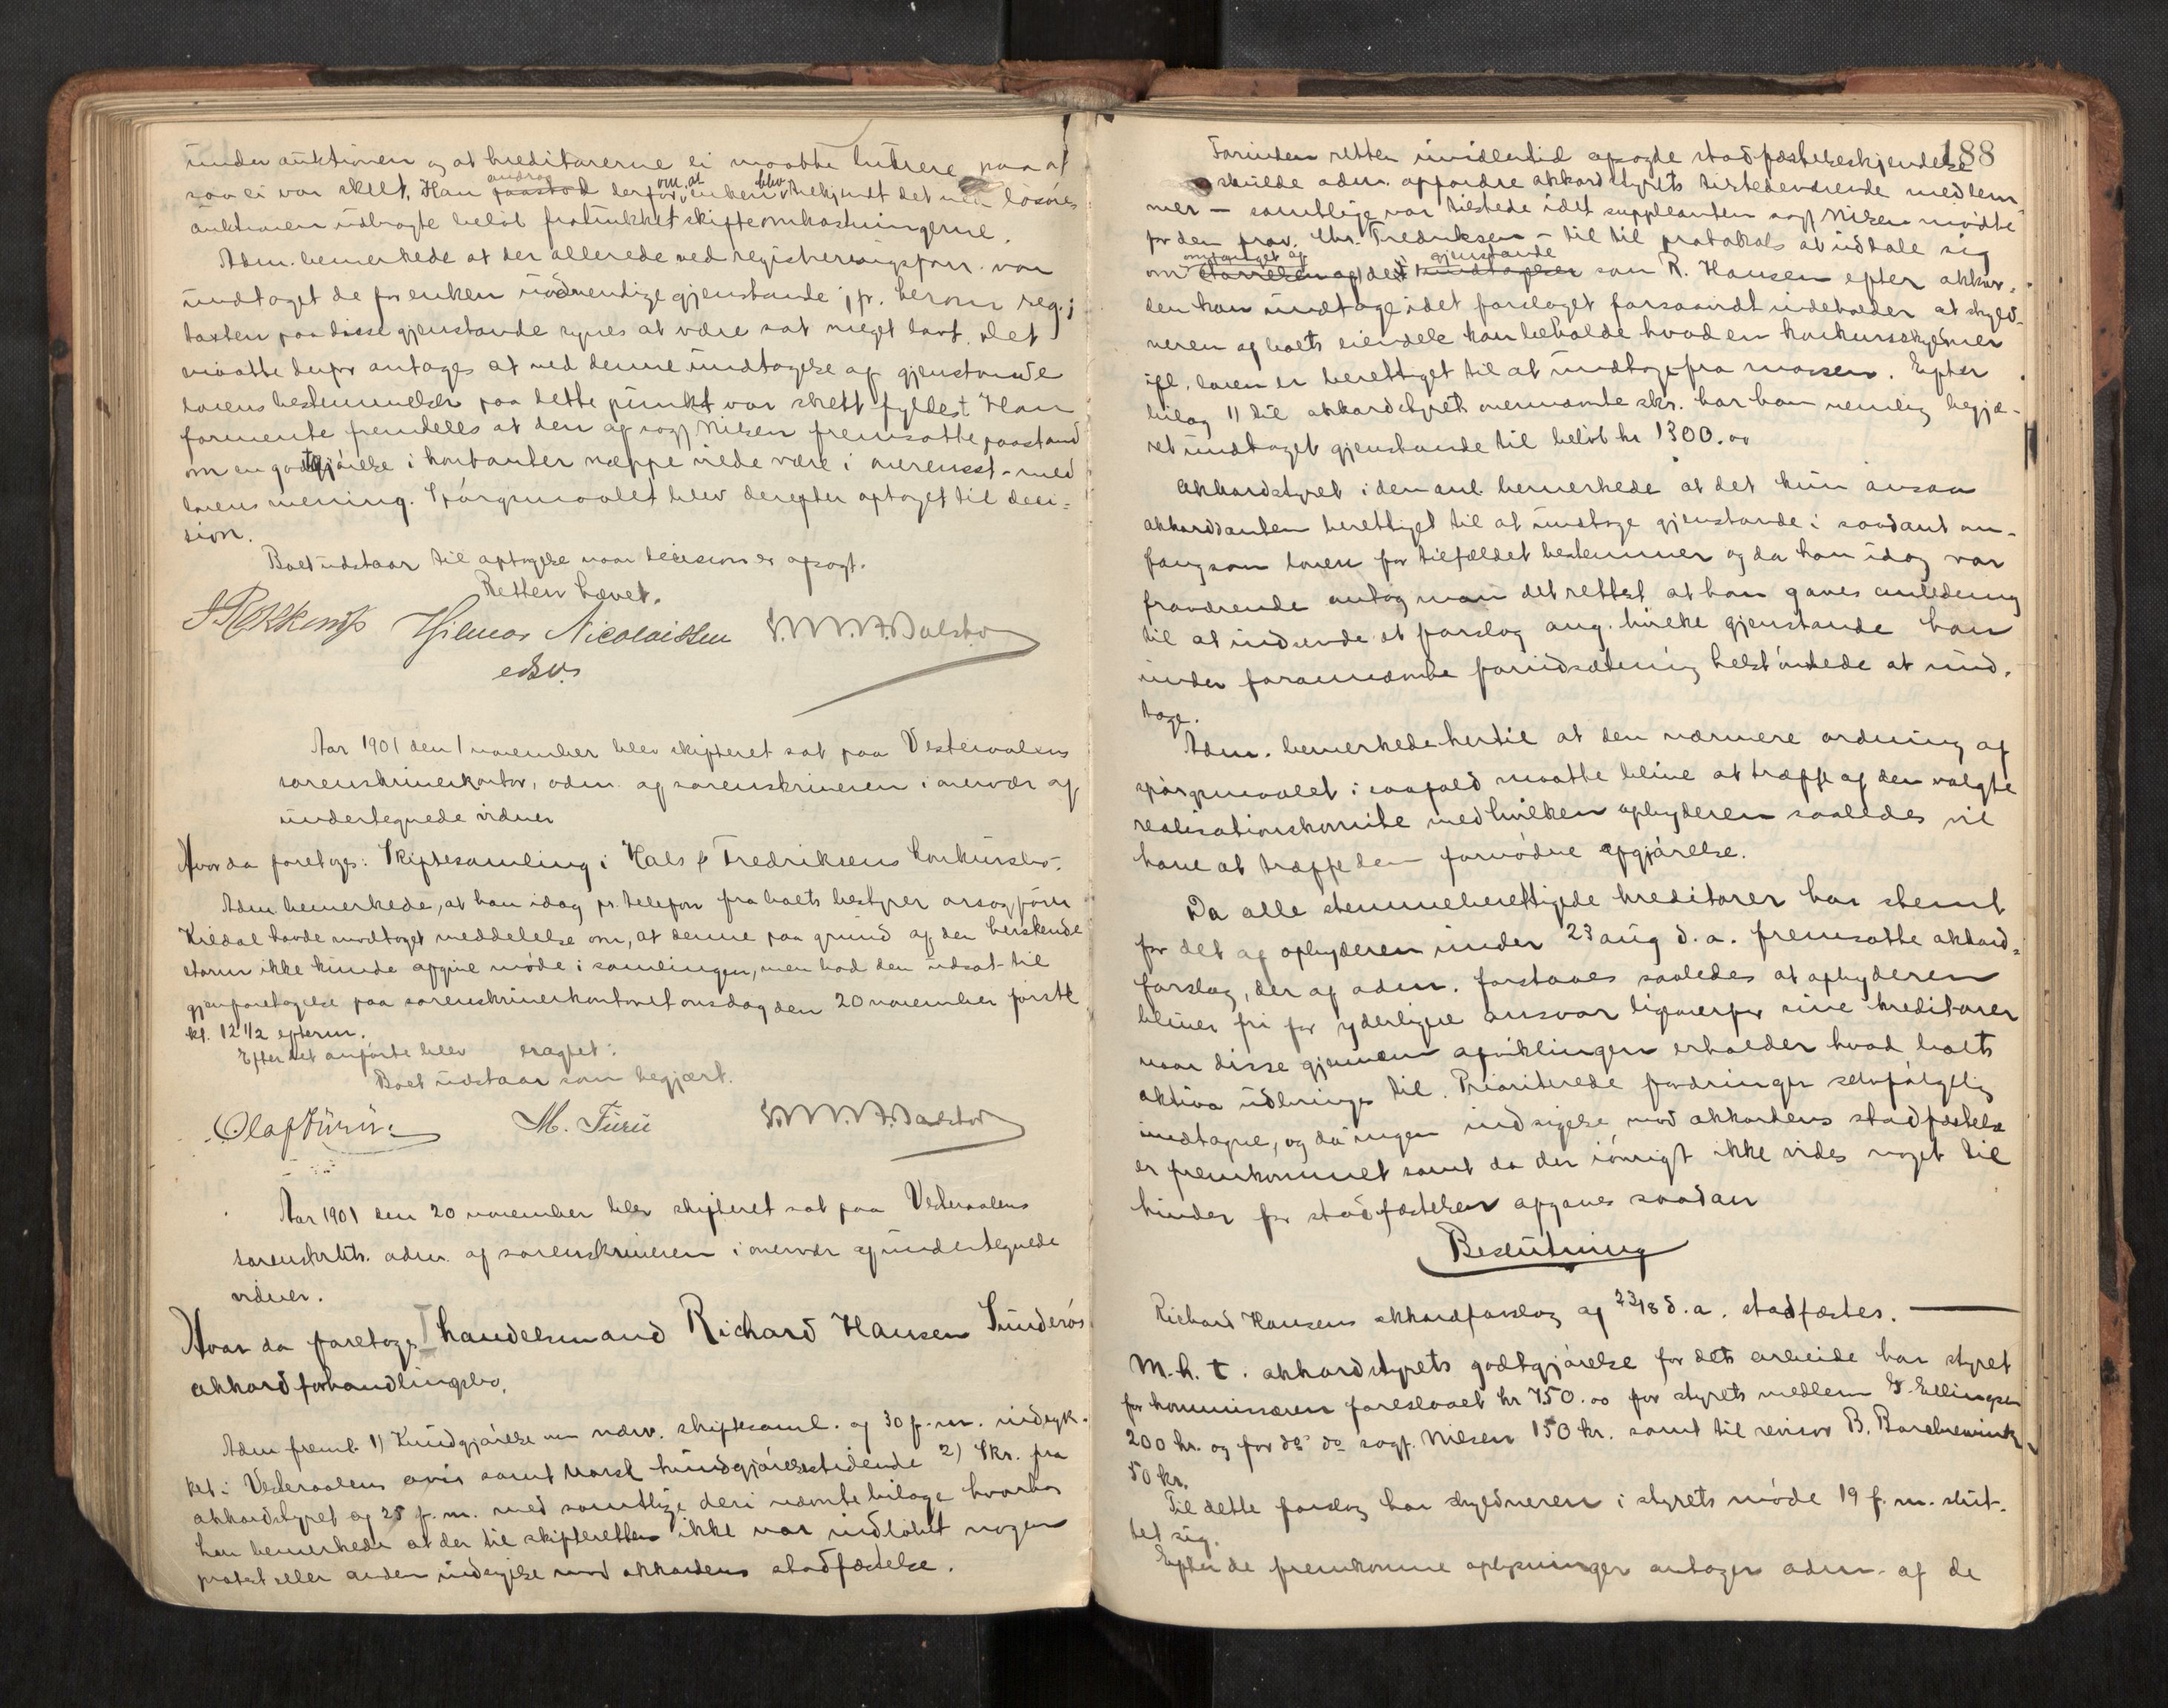 under auktionen og at kreditorerne ei maatte lukrere paa at
saa ei var skeet. Han androg paastod derfor om at enken blev tilkjendt det ved løsøre
auktionen udbragte beløb fratrukket skifteomkostningerne.
Adm. bemerkede at der allerede ved registreringsforr. var
undtaget de for enken nødvendige gjenstande jfr. herom reg.;
taxten paa disse gjenstande synes at være sat meget lavt. Det
maatte derfor antages at ved denne undtagelse af gjenstande
lovens bestemmelser paa dette punkt var skeet fyldest. Han
formente fremdeles at den af sagf. Nilsen fremsatte paastand
om en godtgjørelse i kontanter næppe vilde være i overensst. med
lovens mening. Spørgsmaalet blev derefter optaget til deci-
sion.
Boet udstaar til optagelse naar decision er afsagt.
Retten hævet.
Hilmar Nicolaissen
edsv.
Aar 1901 den 1 november blev skifteret sat paa Vesteraalens
sorenskriverkontor, adm. af sorenskriveren i overvær af
undertegnede vidner
Hvor da foretoges: Skiftesamling i Hals & Fredriksens konkursbo.
Adm bemerkede, at han idag pr. telefon fra boets bestyrer ovsagfører
Kildal havde modtaget meddelelse om, at denne paa grund af den herskende
storm ikke kunde afgive møde i samlingen, men bad den udsat til
gjenforetagelse paa sorenskriverkontoret onsdag den 20 november førstk
kl. 12 1/2 efterm.
Efter det anførte blev eragtet:
Boet udstaar som begjært.
Olaf Furu. M. Furu
Aar 1901 den 20 november blev skifteret sat paa Vesteraalens
sorenskrkts. adm. af sorenskriveren i overvær af undertegnede
vidner.
Hvor da foretoges I handelsmand Richard Hansen Sunderøs
akkordforhandlingsbo.
Adm freml. 1) Kundgjørelse om nærv. skiftesaml. af 30 f.m. indryk-
ket i Vesteraalens avis samt norsk kundgjørelsestidende 2) Skr. fra
akkordstyret af 25 f.m. med samtlige deri nævnte bilage hvorhos
han bemerkede at der til skifteretten ikke var indløbet nogen
protest eller anden indsigelse mod akkordens stadfæstelse.
188
Forinden retten imidlertid afsagde stadfæstelseskjendelse
skulde adm. opfordre akkordstyrets tilstedeværende medlem-
mer – samtlige var tilstede idet suppleanten sagf Nilsen mødte
for den frav. Chr. Fredriksen – til til protokols at udtale sig
om omfanget af størrelsen af de gjenstande undtagelser som R. Hansen efter akkor-
den kan undtage idet forslaget forsaavidt indeholder at skyld-
neren af boets eiendele kan beholde hvad en konkursskyldner
ifl. loven er berettiget til at undtage fra massen. Efter
bilag 11 til akkordstyrets overnævnte skr. har han nemlig begjæ-
ret undtaget gjenstande til beløb kr 1300.00
Akkordstyret i den anl. bemerkede at det kun ansaa
akkordanten berettiget til at undtage gjenstande i saadant om-
fang som loven for tilfældet bestemmer og da han idag var
fraværende antog man det rettest at han gaves anledning
til at indsende et forslag ang. hvilke gjenstande han
under forannævnte forudsætning helst ønskede at und-
tage.
Adm. bemerkede hertil at den nærmere ordning af
spørgsmaalet i saafald maatte blive at træffe af den valgte
realisationskomite med hvilken opbyderen saaledes vil
have at træffe den fornødne afgjørelse.
Da alle stemmeberettigede kreditorer har stemt
for det af opbyderen under 23 aug d.a. fremsatte akkord-
forslag, der af adm. forstaaes saaledes at opbyderen
bliver fri for yderligere ansvar ligeoverfor sine kreditorer
naar disse gjennem afviklingen erholder hvad boets
aktiva udbringes til. Prioriterede fordringer selvfølgelig
undtagne, og da ingen indsigelse mod akkordens stadfæstelse
er fremkommet samt da der iøvrigt ikke vides noget til
hinder for stadfæstelsen afgaves saadan
Beslutning
Richard Hansens akkordforslag af 23/8 d.a. stadfæstes.
M.h.t. akkordstyrets godtgjørelse for dets arbeide har styret
for kommissæren foreslaaet kr 750.00 for styrets medlem E. Ellingsen
200 kr. og for do do sagf. Nilsen 150 kr. samt til revisor B. Borchgrevink
50 kr.
Til dette forslag har skyldneren i styrets møde 19 f.m. slut-
tet sig.
Efter de fremkomne oplysninger antager adm. af de